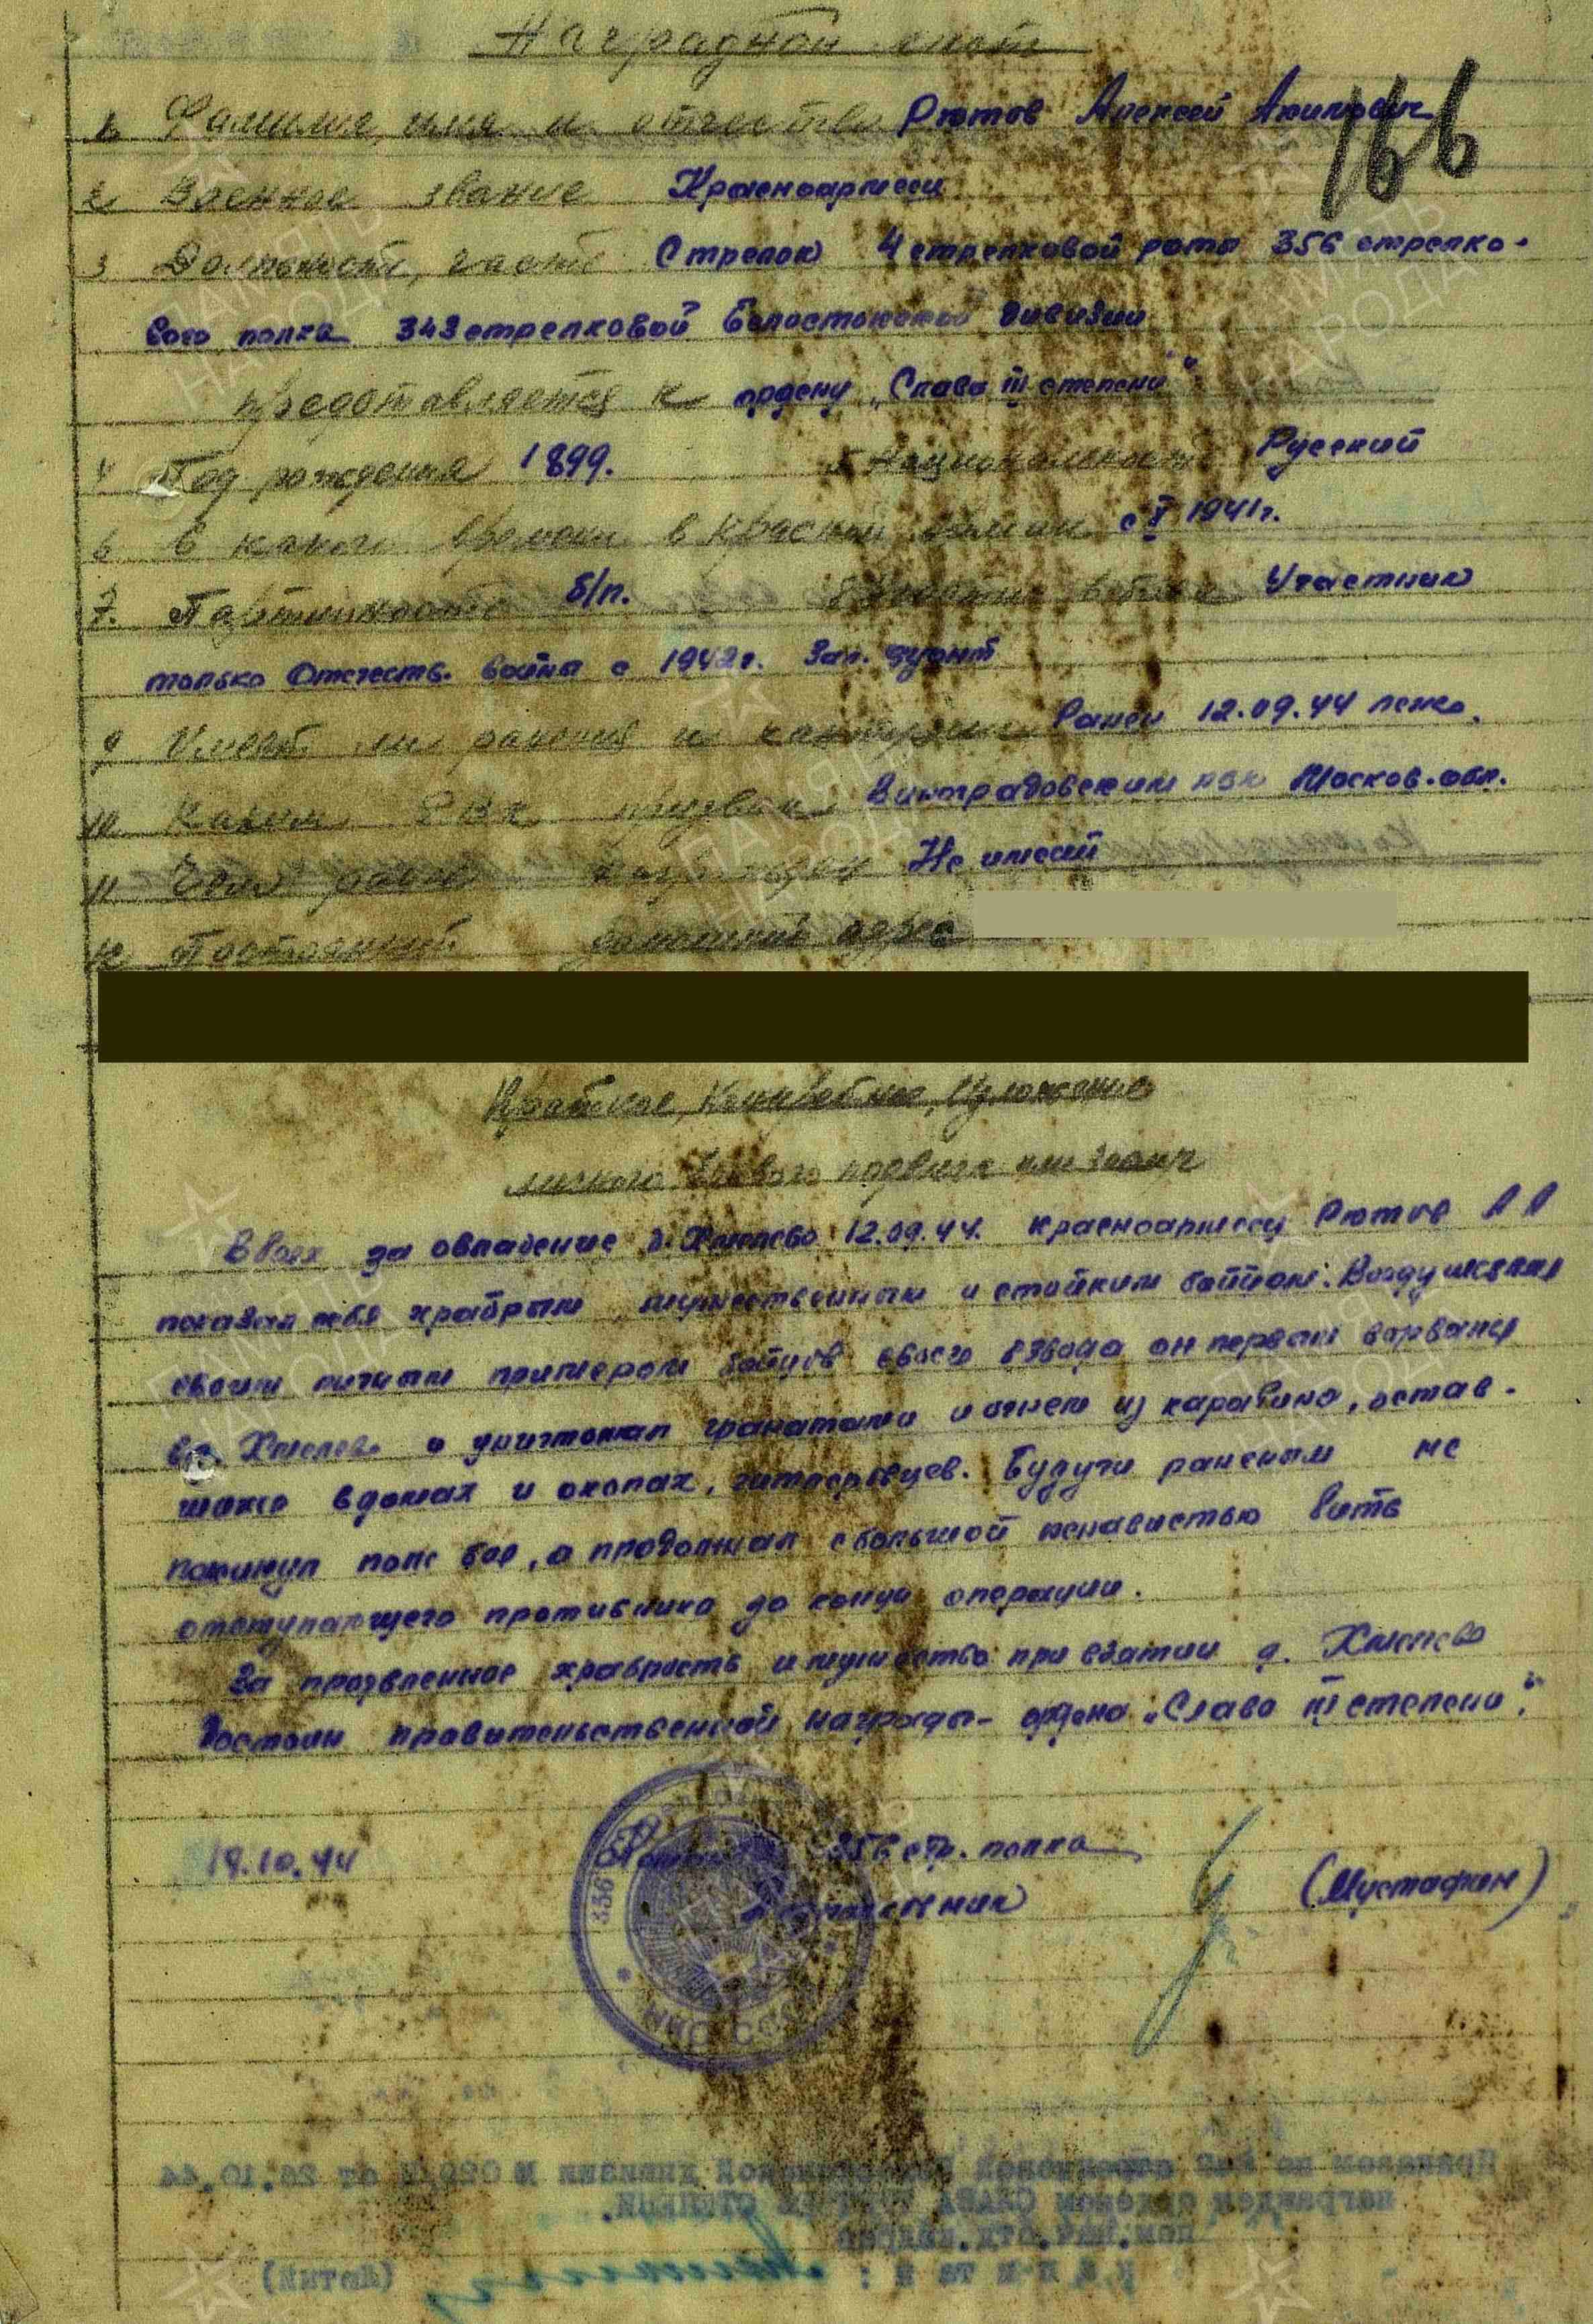 Наградной лист
166
1. Фамилия, имя и отчество Рютов Алексей Акимович
2. Военное звание Красноармеец
3. Должность, часть Стрелок 4 стрелковой роты 356 стрелко-
вого полка 343 стрелковой Белостокской дивизии
представляется к ордену „Слава III степени"
4. Год рождения 1899. 5. Национальность Русский
6. С какого времени в Красной армии с X 1941 г.
7. Партийность б/п. 8. Участие в боях Участник
только Отечеств. войны с 1942 г. Зап. фронт
9. Имеет ли ранения и контузии Ранен 12.09.44 легко.
10. Каким РВК призван Виноградовским РВК Москов. обл.
11. Чем ранее награжден Не имеет
12. Постоянный домашний адрес
Краткое, Конкретное, Изложение
личного боевого подвига или заслуг
В боях за овладение д. Хмелево 12.09.44. красноармеец Рютов А А
показал себя храбрым, мужественным и стойким бойцом. Воодушевляя
своим личным примером бойцов своего взвода он первым ворвался
в д. Хмелево и уничтожал гранатами и огнем из карабина, остав-
шихся в домах и окопах, гитлеровцев. Будучи раненым не
покинул поле боя, а продолжал с большой ненавистью бить
отступающего противника до конца операции.
За проявленное храбрость и мужество при взятии д. Хмелево
Достоин правительственной награды - ордена „Слава III степени".
19.10.44 356 стр. полка
Подполковник (Мустафин)
356
НКО СССР
Приказом по 343 стрелковой Белостокской дивизии от 26.10.44
награжден орденом СЛАВА ТРЕТЬЕЙ СТЕПЕНИ.
пом.нач.отд.кадров
капитан: (Лютый)
ПАМЯТЬ НАРОДА